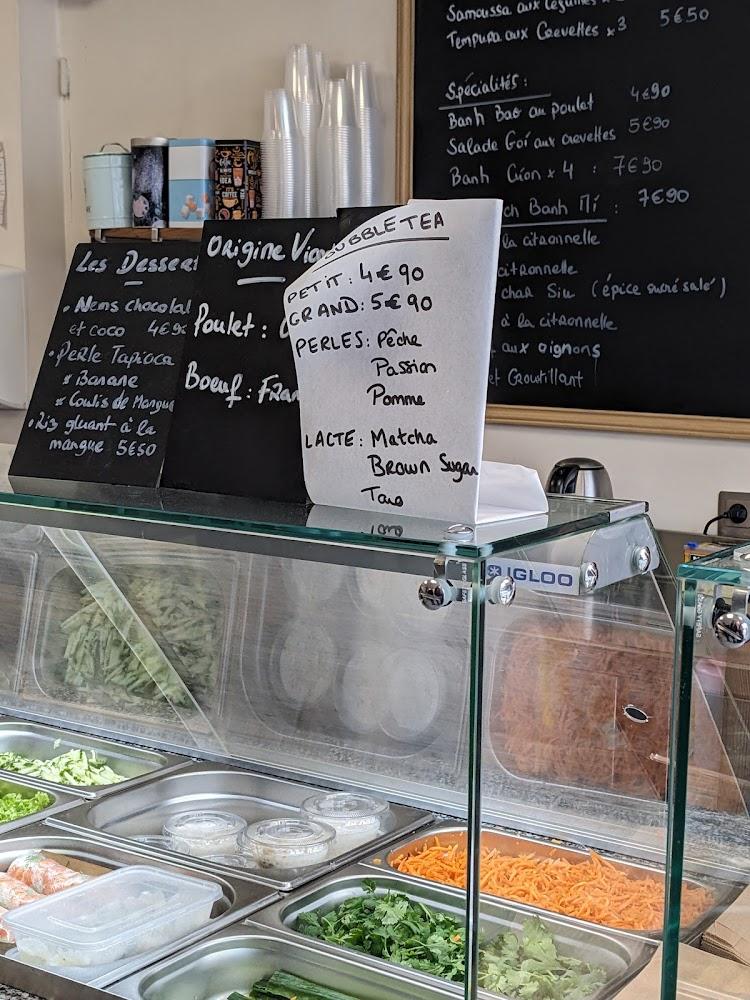 Samoussa aux légumes
Tempura aux Crevettes x3 5€50
Spécialités:
Banh Bao au poulet 4€90
Salade Goï aux crevettes 5€90
Banh Cíon x 4 : 7€90
ch Banh Mí : 7€90
la citronnelle
citronnelle
char Siu (épice sucré salé)
à la citronnelle
aux oignons
et Croustillant
Les Desser
• Nems chocolat
et coco 4€90
• Perle Tapioca
* Banane
* Coulis de Mangue
• Riz gluant à la
mangue 5€50
Origine Vian
Poulet :
Boeuf : Fran
BUBBLE TEA
PETIT : 4€90
GRAND : 5€90
PERLES : Pêche
Passion
Pomme
LACTE : Matcha
Brown Sugar
Taro
IGLOO